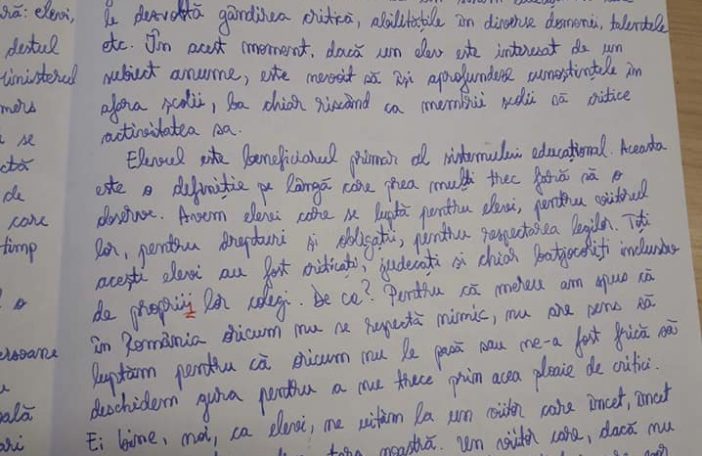 ră: elevi,
destul
ministerul
mers
se
ctă
de
care
timp
o
ersoane
u
ală
ari
le dezvoltă gândirea critică, abilitățile în diverse domenii, talentele
etc. În acest moment, dacă un elev este interesat de un
subiect anume, este nevoit să își aprofundeze cunoștințele în
afara școlii, ba chiar riscând ca membrii școlii să critice
activitatea sa.
Elevul este beneficiarul primar al sistemului educațional. Aceasta
este o definiție pe lângă care prea mulți trec fără să o
observe. Avem elevi care se luptă pentru elevi, pentru viitorul
lor, pentru drepturi și obligații, pentru respectarea legilor. Toți
acești elevi au fost criticați, judecați și chiar batjocoriți inclusiv
de proprii lor colegi. De ce? Pentru că mereu am spus că
în România oricum nu se respectă nimic, nu are sens să
luptăm pentru că oricum nu le pasă sau ne-a fost frică să
deschidem gura pentru a nu trece prin acea ploaie de critici.
Ei bine, noi, ca elevi, ne uităm la un viitor care încet, încet
țara noastră. Un viitor care, dacă nu